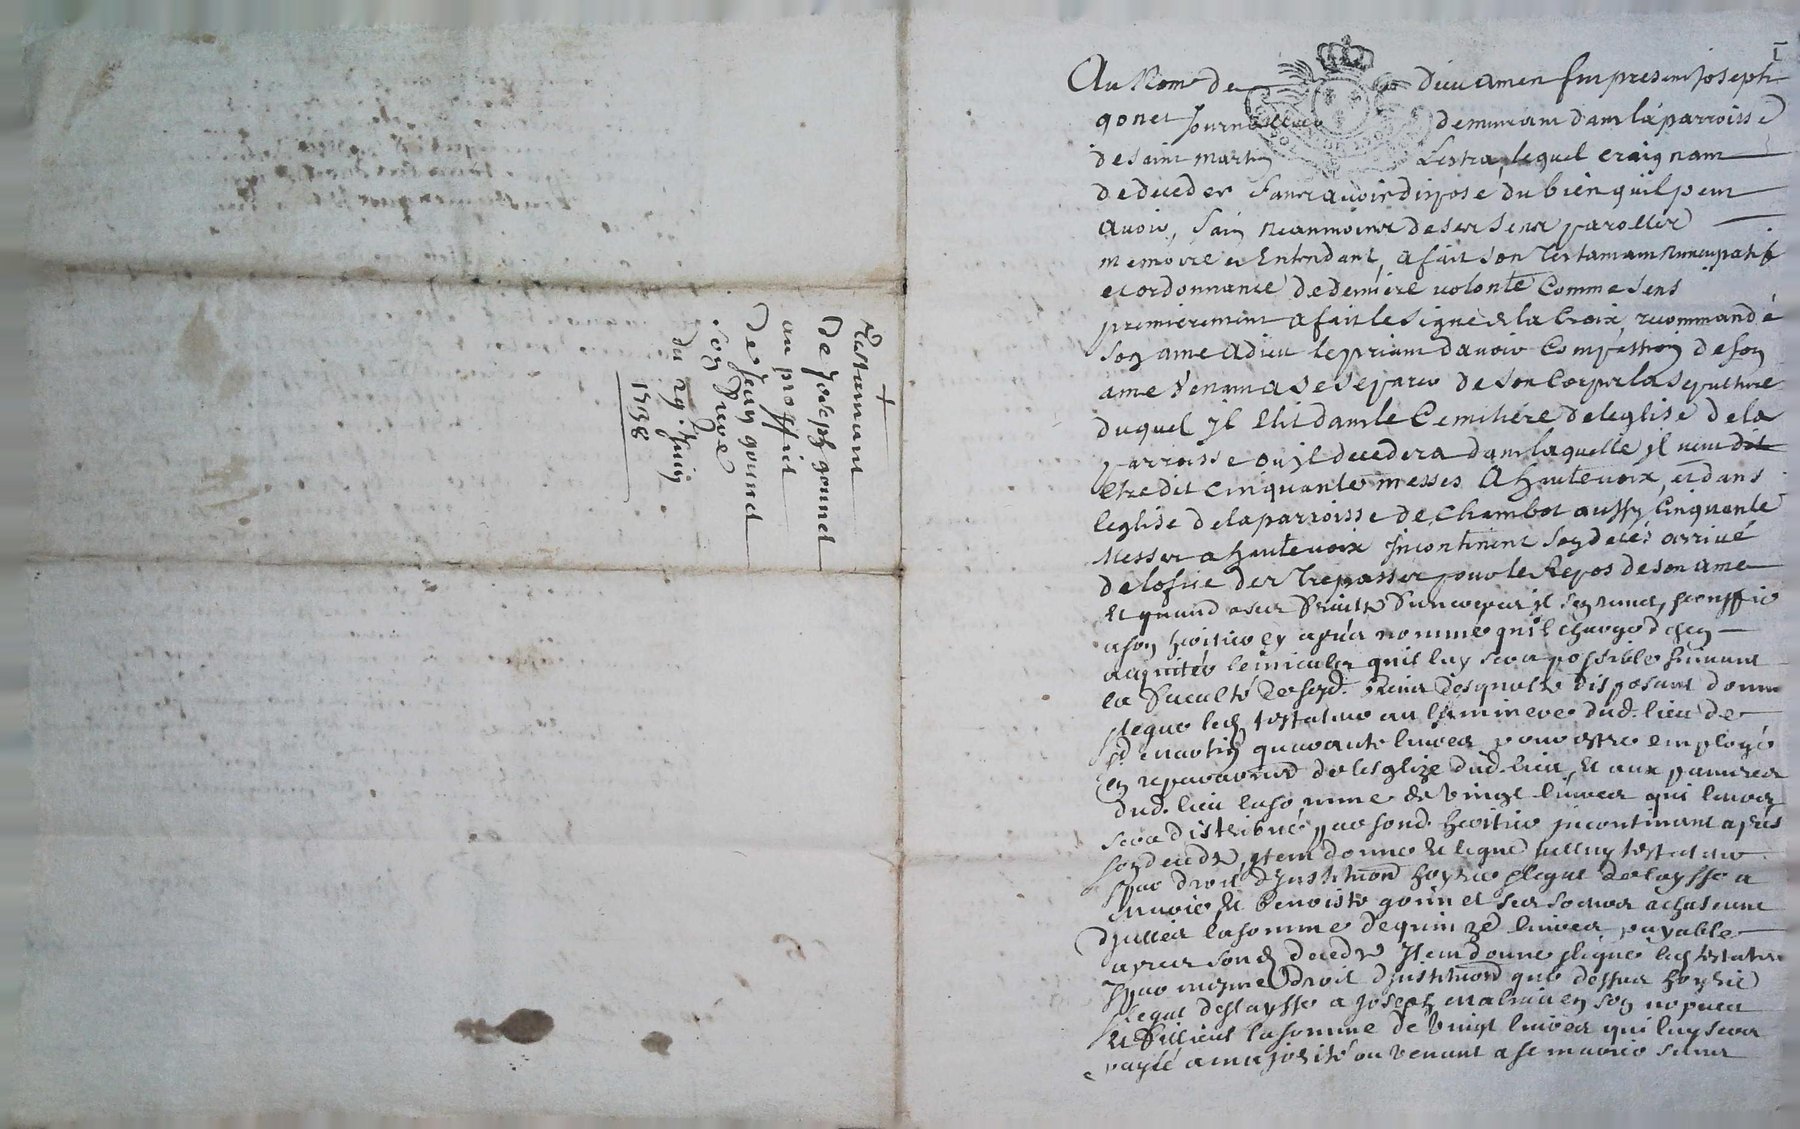 Testamant
de Joseph gonnet
au proffict
de Jean gonnet
son frere
du 29. Juin
1738
I
Au Nom de Dieu amen fut present Joseph
gonet Journallier demeurant dans la parroisse
de saint martin Lestra, lequel craignant
de deceder sans avoir dispose du bien quil peut
avoir, sain neanmoins de ses sens parolles
memoire et Entendant, a fait son Testamant Nuncupatif
et ordonnance de derniere volonte Comme sens
premierement a fait le signe de la Croix, recommandé
son ame a dieu le priant davoir Compassion de son
ame venant a se separer de son Corps la sepulture
duquel jl Elit dans le Cemitiére de leglise de la
parroisse ou jl decedera dans laquelle jl veut
Etre dit cinquante messes A haute voix, et dans
leglise de la parroisse de Chambot aussy Cinquante
Messes a haute voix Incontinent son deces arrivé
de lofice des Trepasses pour le Repos de son ame
Et quand a ses fraits funeraires jl sen remet,
a son heritier cy apres nommé quil charge den
aquiter le mieux quil luy sera possible suivant
la faculté de sesd. biens desquels disposant donne
legue led. testateur au luminere dud. lieu de
st martin quarante livres pour estre employé
en reparaons de lesglize dud. lieu, Et aux pauvres
dud. lieu la somme de vingt livres qui leur
sera distribué par sond. heritier jncontinant apres
son decedz, jtem donne et legue testateur
par droit djnstitution
et benoiste gonnet ses soeurs a chascune
djcelles la somme de quinze livres payable
apres sond. decedz Jtem donne legue led. testateur
par mesme droit djnstitution que dessus
legat delaysse a Joseph son nepveu
et fillieul la somme de vingt livres qui luy sera
payé a majorité ou venant a se marier sans